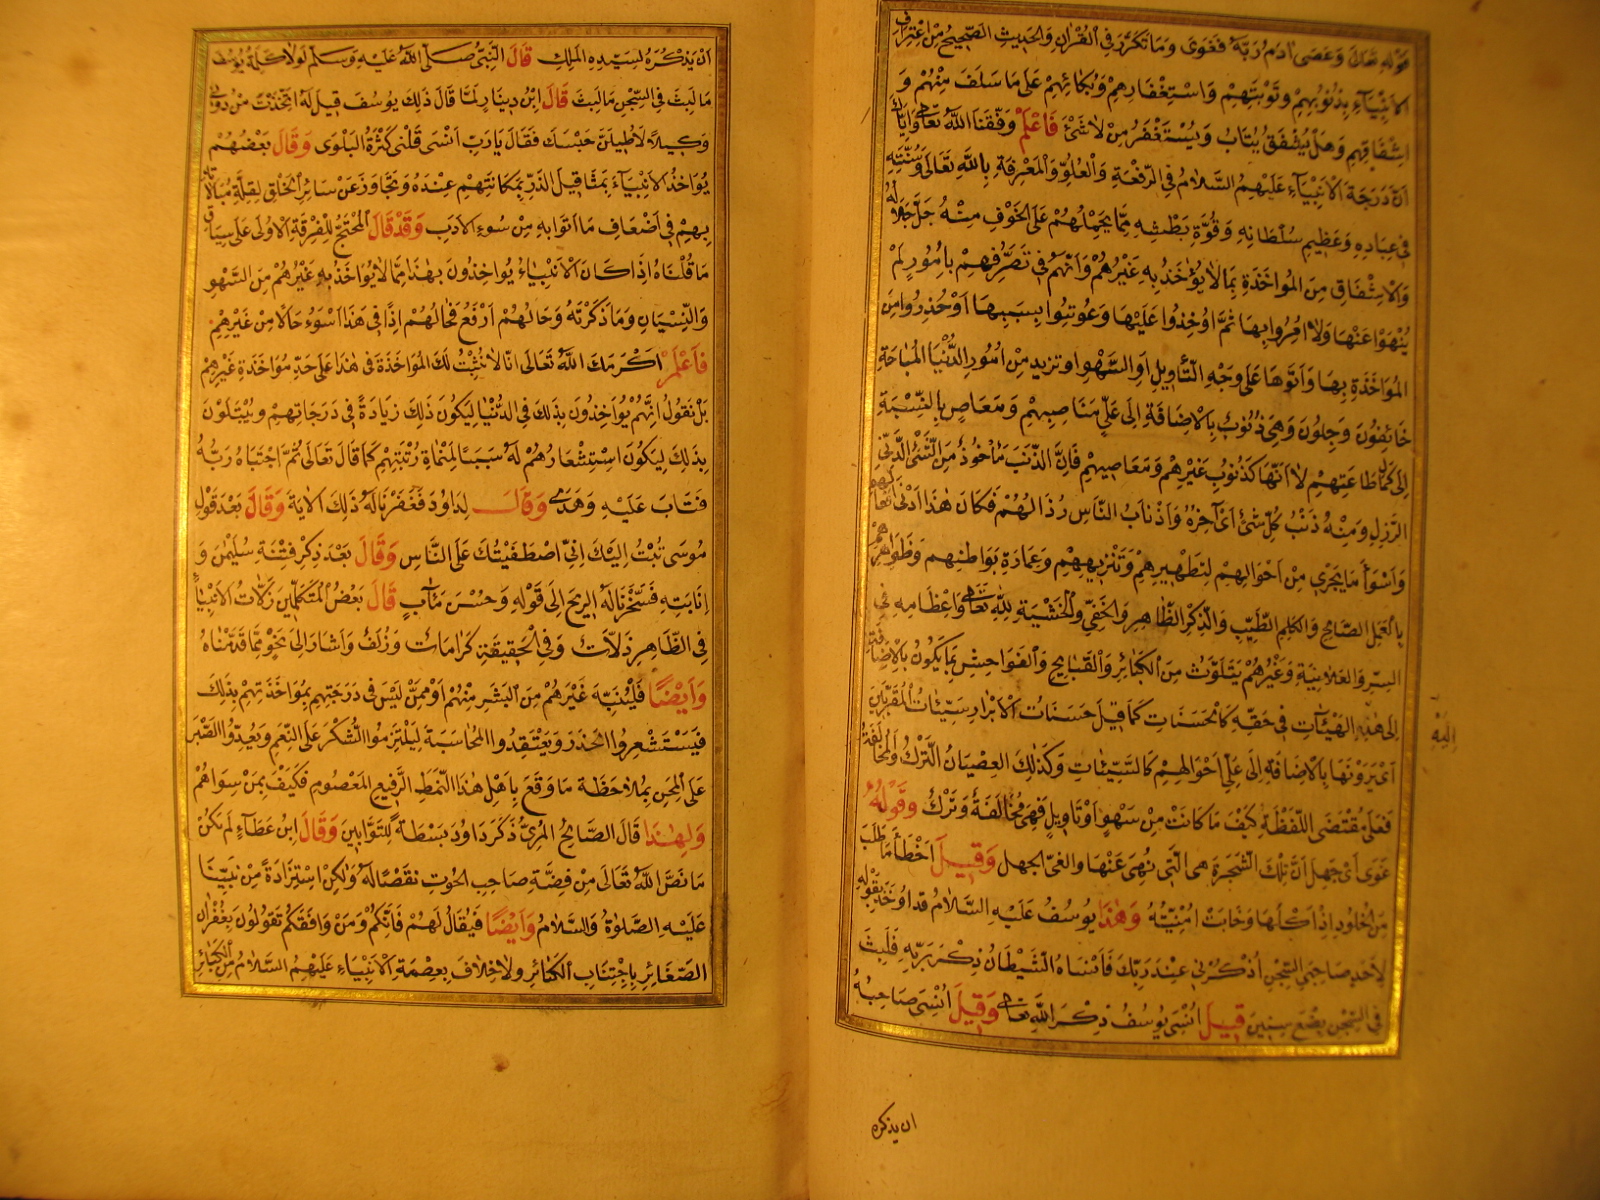 قوله تعالى وعصى آدم ربه فغوى وما تكرر في القرآن والحديث الصحيح من اعتراف
الانبياء بذنوبهم وتوبتهم واستغفارهم وبكائهم على ما سلف منهم و
اشفاقهم وهل يشفق يتاب ويستغفر من لا شئ فاعلم وفقنا الله تعالى واياك
ان درجة الانبياء عليهم السلام في الرفعة والعلو والمعرفة بالله تعالى وسنته
في عباده وعظيم سلطانه وقوة بطشه مما يحملهم على الخوف منه جل جلاله
والاشفاق من المواخذة بما لا يؤخذ به غيرهم وانهم في تصرفهم بامور لم
ينهوا عنها ولا امروا بها ثم اوخذوا عليها وعوتبوا بسببها او حذروا من
المواخذة بها واتوها على وجه التأويل او السهو او تزيد من امور الدنيا المباحة
خائفون وجلون وهي ذنوب بالاضافة الى علي مناصبهم ومعاص بالنسبة
الى كمال طاعتهم لا انها كذنوب غيرهم ومعاصيهم فان الذنب مأخوذ من الشئ الدني
الرذل ومنه ذنب كل شئ اى آخره واذناب الناس رذالهم فكان هذا ادنى افعالهم
واسوأ ما يجرى من احوالهم لتطهيرهم وتنزيههم وعمارة بواطنهم وظواهرهم
بالعمل الصالح والكلم الطيب والذكر الظاهر والخفي والخشية لله تعالى واعظامه في
السر والعلانية وغيرهم يتلوث من الكبائر والقبايح والفواحش بما يكون بالاضافة
الى هذه الهيئات في حقه كالحسنات كما قيل حسنات الابرار سيئات المقربين
اليه
اى يرونها بالاضافة الى علي احوالهم كالسيئات وكذلك العصيان الترك والمخالفة
فعلى مقتضى اللفظة كيف ما كانت من سهو او تاويل فهي مخالفة وترك وقوله
غوى اى جهل ان تلك الشجرة هي التي نهى عنها والغي الجهل وقيل اخطأ ما طلب
من الخلود اذ اكلها وخابت امنيته وهذا يوسف عليه السلام قد اوخذ بقوله
لاحد صاحبي السجن اذكرنى عند ربك فأنساه الشيطان ذكر ربه فلبث
في السجن بضع سنين قيل انسى يوسف ذكر الله تعالى وقيل انسى صاحبه
ان يذكره
ان يذكره لسيده الملك قال النبى صلى الله عليه وسلم لولا كلمة يوسف
ما لبث في السجن ما لبث قال ابن دينار لما قال ذلك يوسف قيل له اتخذت من دونى
وكيلا لاطيلن حبسك فقال يا رب انسى قلبى كثرة البلوى وقال بعضهم
يواخذ الانبياء بمثاقيل الذر بمكانتهم عنده وتجاوز عن سائر الخلق لقلة مبالاته
بهم في اضعاف ما اتوا به من سوء الادب وقد قال المحتج للفرقة الاولى على سياق
ما قلناه اذا كان الانبياء يواخذون بهذا مما لا يواخذ به غيرهم من السهو
والنسيان وما ذكرته وحالهم ارفع فحالهم اذا في هذا اسوء حالا من غيرهم
فاعلم اكرمك الله تعالى انا لا نثبت لك المواخذة في هذا على حد مواخذة غيرهم
بل نقول انهم يواخذون بذلك في الدنيا ليكون ذلك زيادة في درجاتهم ويبتلون
بذلك ليكون استشعارهم له سببا لمنماة رتبتهم كما قال تعالى ثم اجتباه ربه
فتاب عليه وهدى وقال لداود فغفرنا له ذلك الاية وقال بعد قول
موسى تبت اليك انى اصطفيتك على الناس وقال بعد ذكر فتنة سليمن و
انابته فسخرنا له الريح الى قوله وحسن مآب قال بعض المتكلمين زلات الانبياء
في الظاهر زلات وفي الحقيقة كرامات وزلف واشار الى نحو مما قدمناه
وايضا فلينبه غيرهم من البشر منهم او ممن ليس في درجتهم بمواخذتهم بذلك
فيستشعروا الحذر ويعتقدوا المحاسبة ليلتزموا الشكر على النعم ويعدوا الصبر
على المحن بملاحظة ما وقع باهل هذا النمط الرفيع المعصوم فكيف بمن سواهم
ولهذا قال الصالح المرى ذكر داود بسطة للتوابين وقال ابن عطاء لم يكن
ما نص الله تعالى من قصة صاحب الحوت نقصا له ولكن استزادة من نبينا
عليه الصلوة والسلام وايضا فيقال لهم فانكم ومن وافقكم تقولون بغفران
الصغائر باجتناب الكبائر ولا خلاف بعصمة الانبياء عليهم السلام من الكبائر